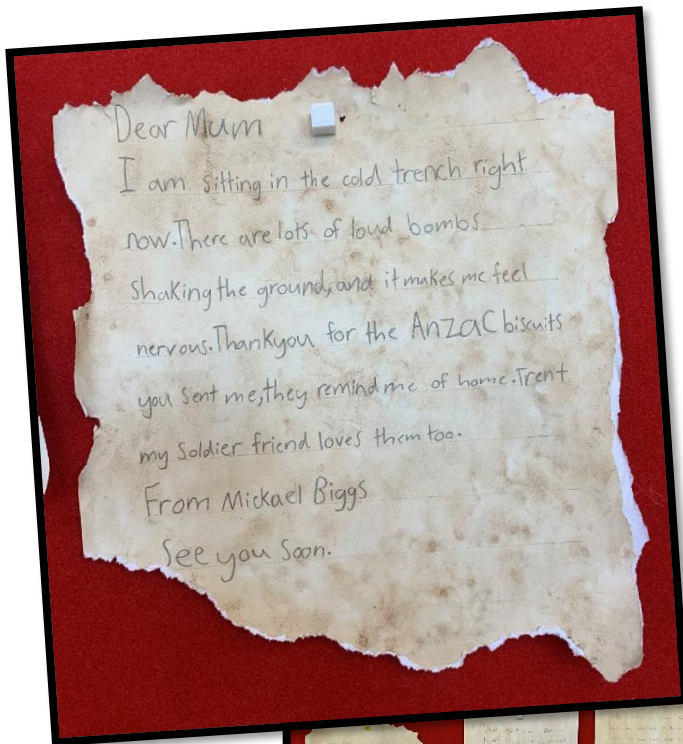 Dear Mum
I am sitting in the cold trench right
now.There are lots of loud bombs
shaking the ground, and it makes me feel
nervous.Thankyou for the AnzaC biscuits
you sent me,they remind me of home.Trent
my Soldier friend loves them too.
From Mickael Biggs
See you soon.